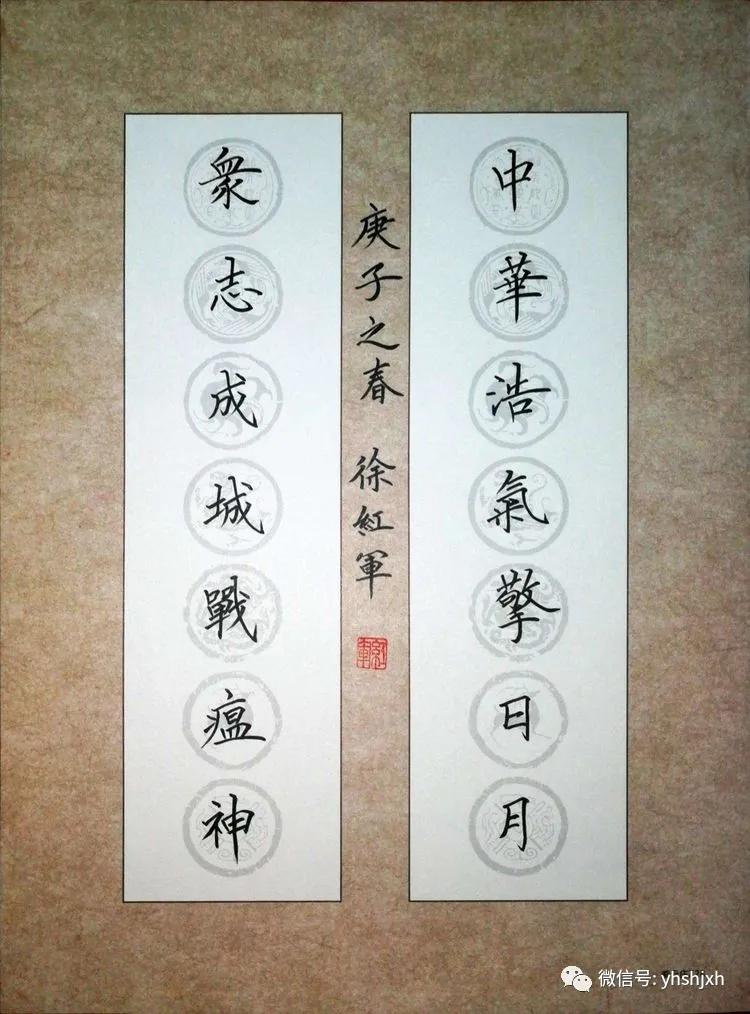 中華浩氣擎日月
衆志成城戰瘟神
庚子之春 徐紅軍
微信号: yhshjxh